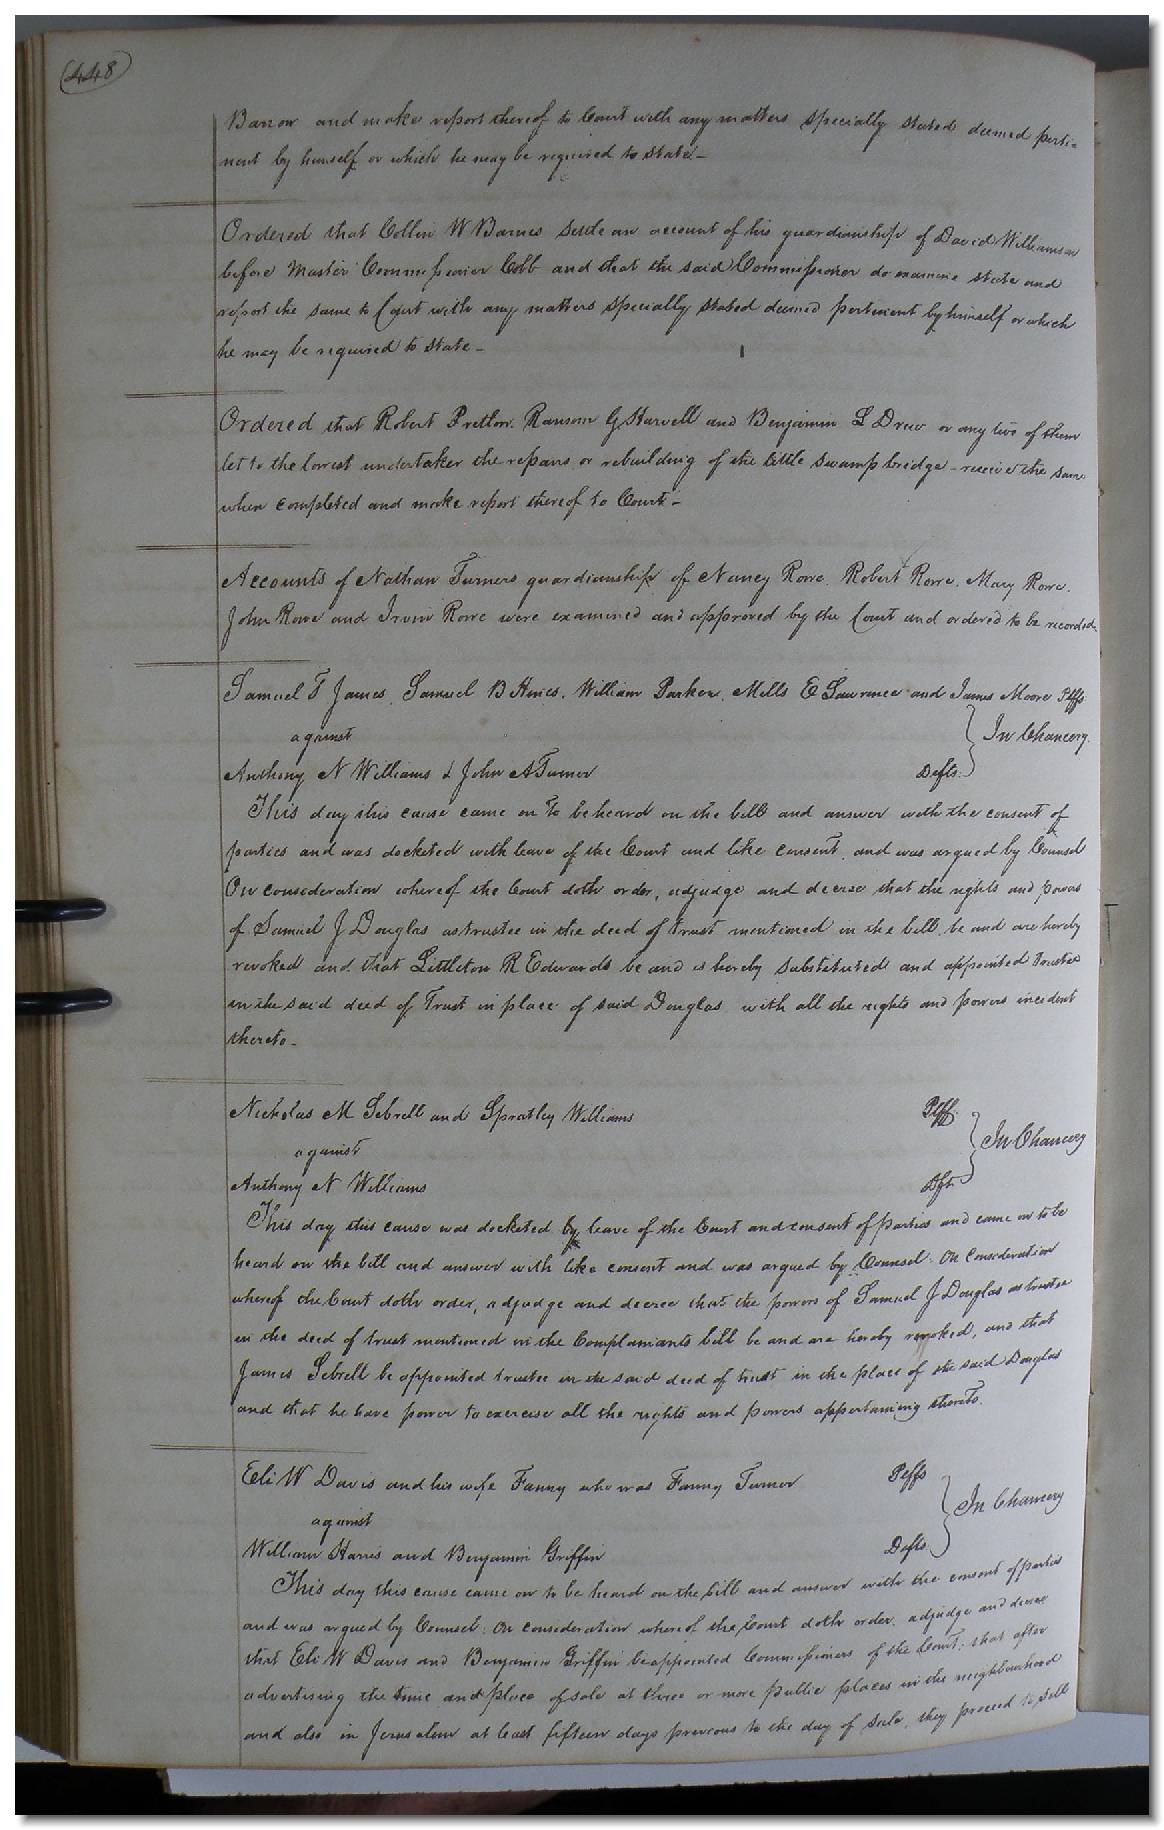 448
Barrow and make report thereof to Court with any matters specially stated deemed perti=
nent by himself or which he may be required to state_
Ordered that Collin W Barnes settle an account of his guardianship of David Williamson
before Master Commissioner Cobb and that the said Commissioner do examine state and
report the same to Court with any matters specially stated deemed pertinent by himself or which
he may be required to state_
Ordered that Robert Pretlow, Ransom G Harvell and Benjamin L Drew or any two of them
let to the lowest undertaker the repairs or rebuilding of the little swamp bridge - receive the same
when completed and make report thereof to Court_
Accounts of Nathan Turners guardianship of Nancy Rowe, Robert Rowe, Mary Rowe,
John Rowe and Irvin Rowe were examined and approved by the Court and ordered to be recorded_
Samuel T James, Samuel B Hines, William Parker, Mills E Lawrence and James Moore Plffs
against In Chancery.
Anthony N Williams & John A Turner Defts.
This day this cause came on to be heard on the bill and answer with the consent of
parties and was docketed with leave of the Court and like consent, and was argued by Counsel
On consideration whereof the Court doth order, adjudge and decree that the rights and powers
of Samuel J Douglas as trustee in the deed of trust mentioned in the bill, be and are hereby
revoked and that Littleton R Edwards be and is hereby substituted and appointed trustee
in the said deed of Trust in place of said Douglas with all the rights and powers incident
thereto_
Nicholas M Sebrell and Spratley Williams Plff.
against In Chancery
Anthony N Williams Dft.
This day this cause was docketed by leave of the Court and consent of parties and came on to be
heard on the bill and answer with like consent and was argued by Counsel. On consideration
whereof the Court doth order, adjudge and decree that the powers of Samuel J Douglas as trustee
in the deed of trust mentioned in the Complainants bill be and are hereby revoked, and that
James Sebrell be appointed trustee in the said deed of trust in the place of the said Douglas
and that he have power to exercise all the rights and powers appertaining thereto.
Eli W Davis and his wife Fanny who was Fanny Turner Plffs
against In Chancery
William Harris and Benjamin Griffin Defts.
This day this cause came on to be heard on the bill and answer with the consent of parties
and was argued by Counsel: On consideration whereof the Court doth order, adjudge and decree
that Eli W Davis and Benjamin Griffin be appointed Commissioners of the Court; that after
advertising the time and place of sale at three or more public places in the neighbourhood
and also in Jerusalem at least fifteen days previous to the day of sale, they proceed to sell